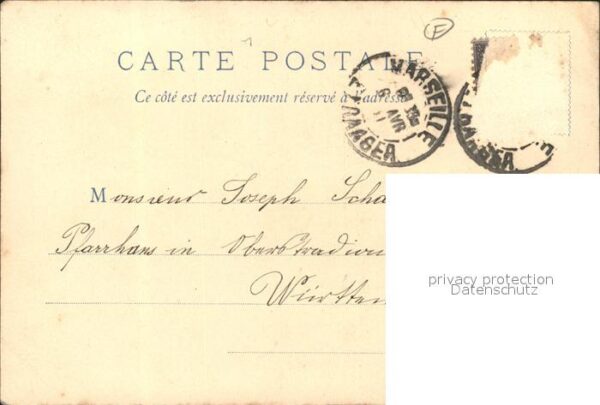 F
CARTE POSTALE
Ce côté est exclusivement réservé à l'adresse
MARSEILLE
AVRIL
MARSEILLE
Monsieur Joseph Scha
Pfarrhaus in Oberstradion
privacy protection
Datenschutz
Württem